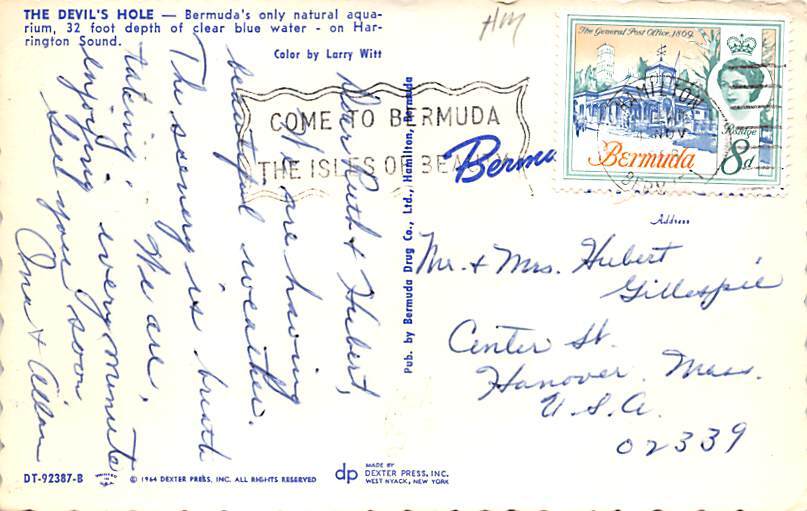 THE DEVIL'S HOLE — Bermuda's only natural aqua-
rium, 32 foot depth of clear blue water - on Har-
rington Sound.
Color by Larry Witt
HM
COME TO BERMUDA
THE ISLES OF
The General Post Office, 1869
HAMILTON
NOV
Postage
Bermuda
8d
Bermu
Pub. by Bermuda Drug Co., Ltd., Hamilton, Bermuda
Dear Ruth & Hubert,
We are having
beautiful weather.
The scenery is breath
taking. We are,
enjoying every minute
See you soon
Ona & Allan
Address
Mr. & Mrs. Hubert
Gillespie
Center St.
Hanover, Mass.
U.S.A.
02339
DT-92387-B
© 1964 DEXTER PRESS, INC. ALL RIGHTS RESERVED
dp
MADE BY
DEXTER PRESS, INC.
WEST NYACK, NEW YORK